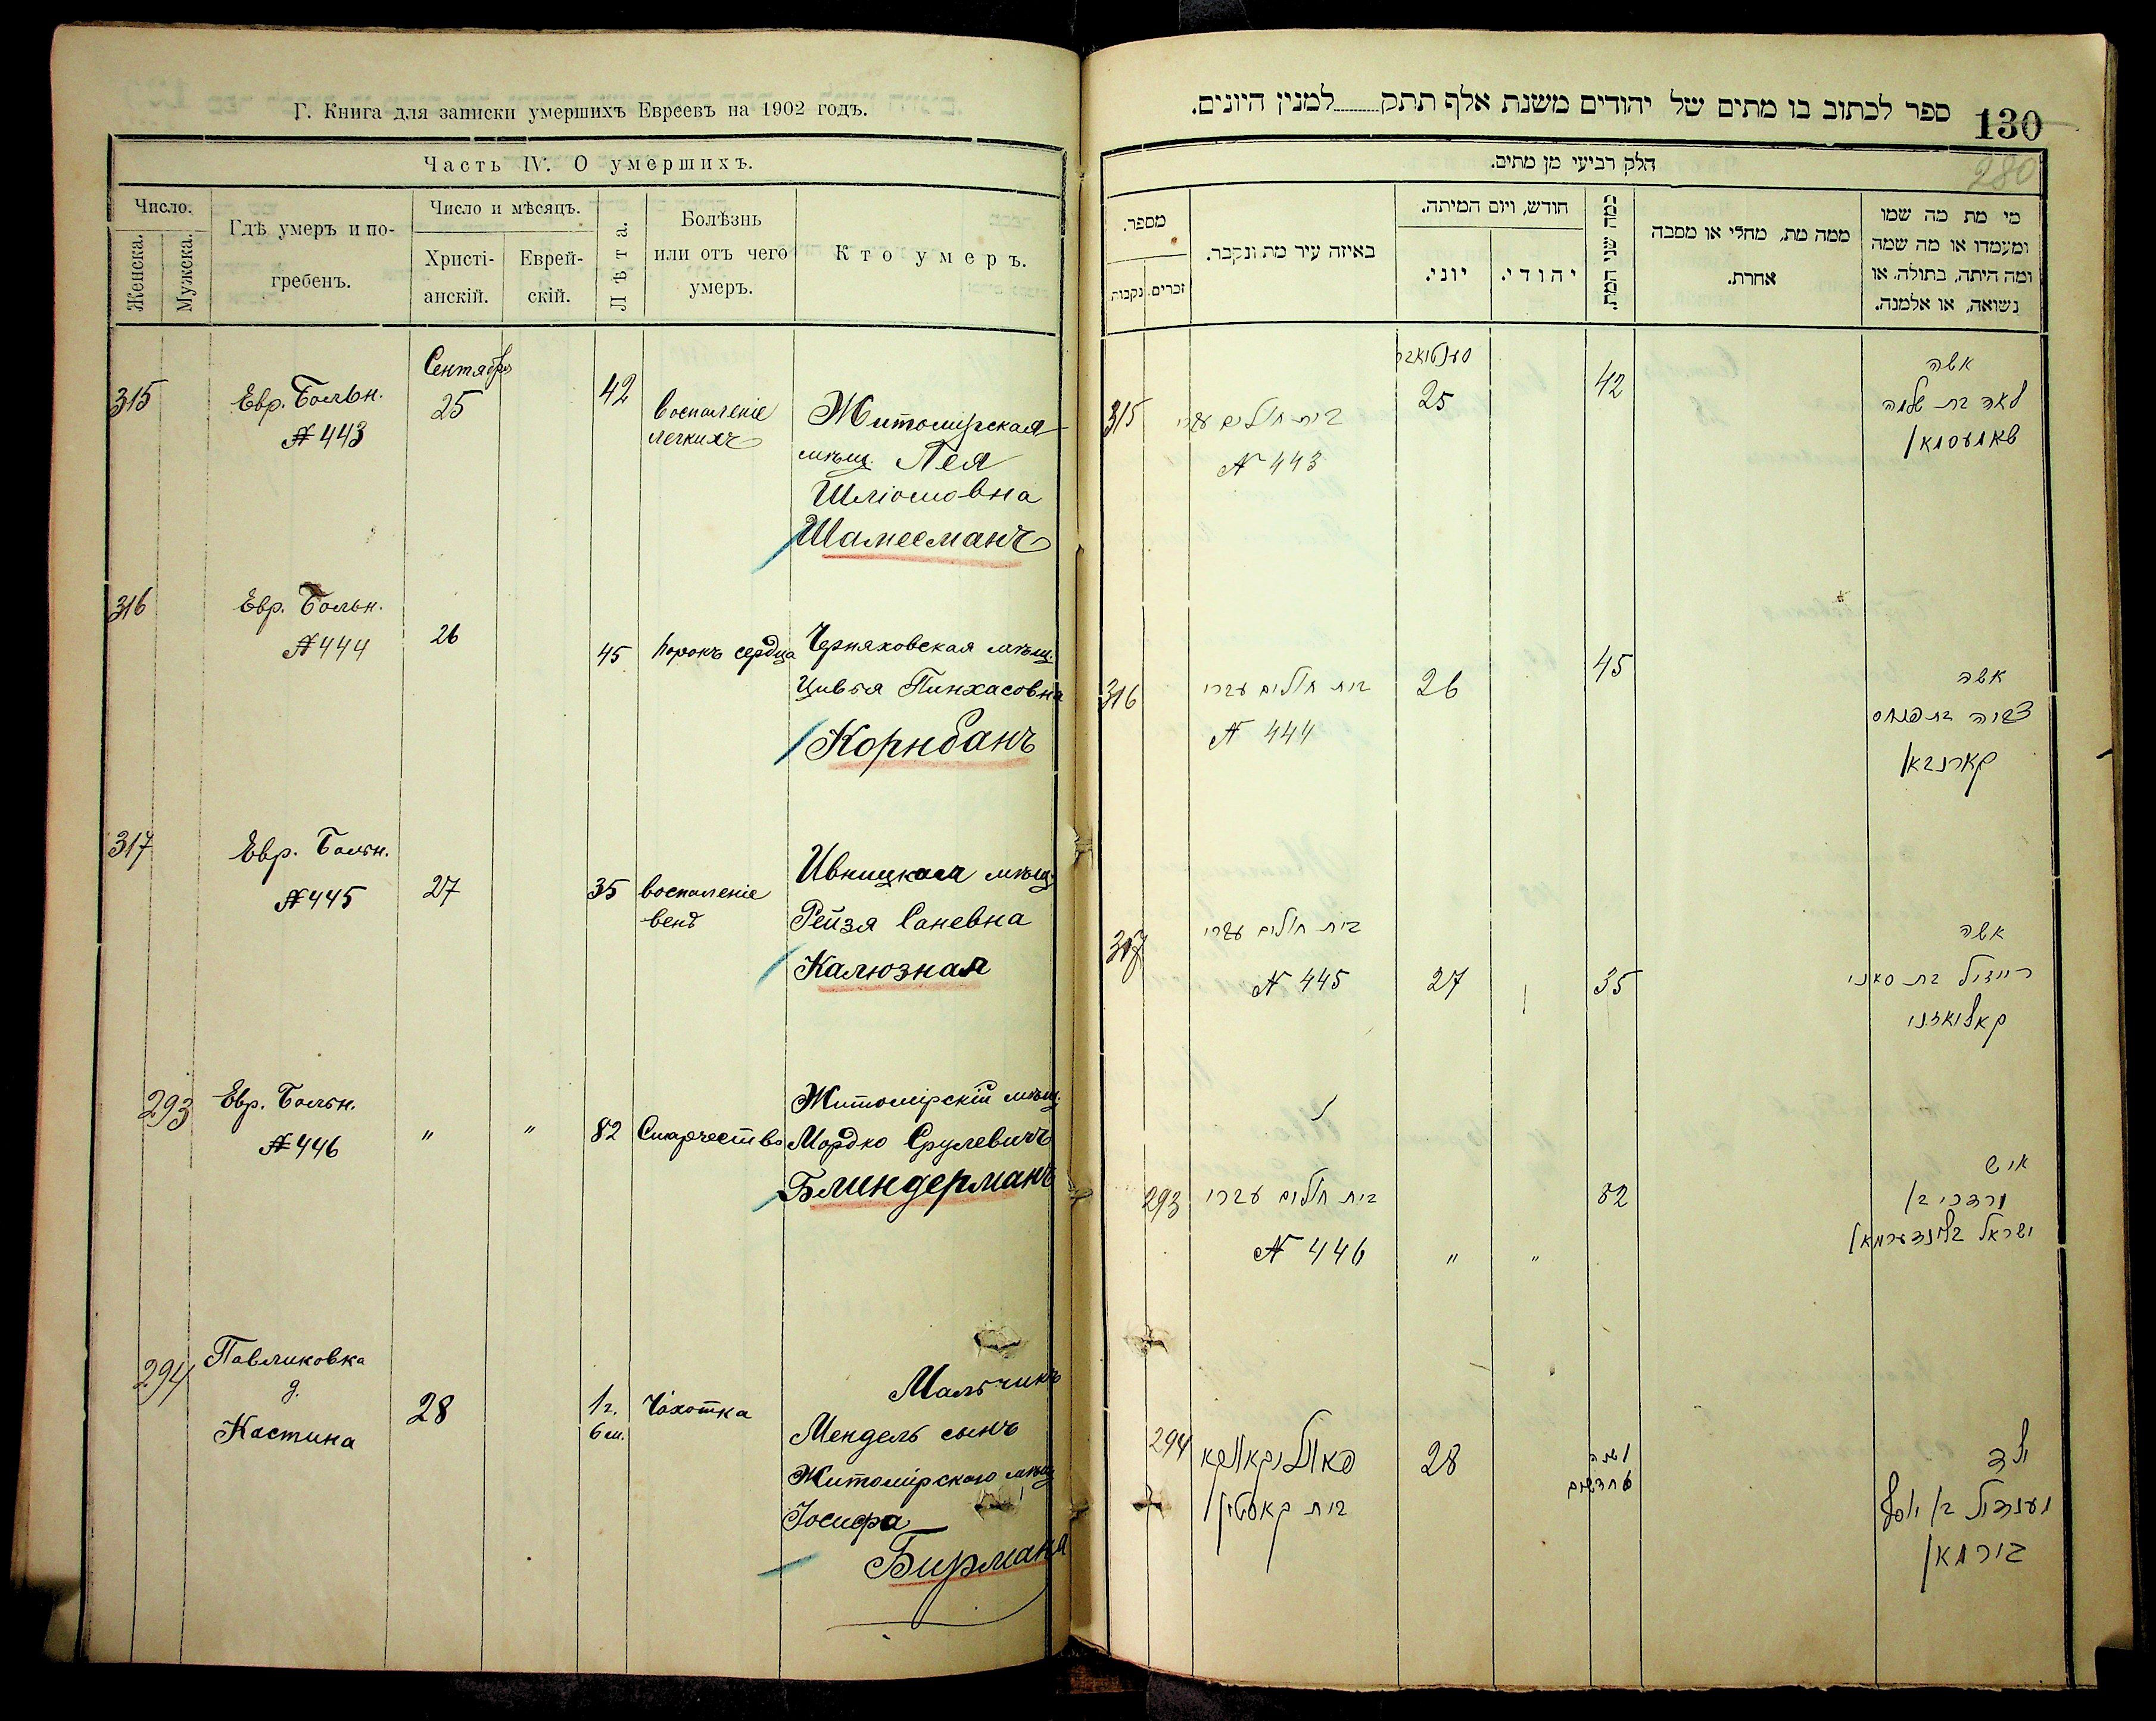 Г. Книга для записки умершихъ Евреевъ на 1902 годъ.
Часть IV. О умершихъ.
Число.
Женска.
Мужска.
Гдѣ умеръ и по-
гребенъ.
Число и мѣсяцъ.
Христі-
анскій.
Еврей-
скій.
Лѣта.
Болѣзнь
или отъ чего
умеръ.
Кто умеръ.
Сентября
315 Евр. Больн. 25 42 воспаленіе Житомірская
№ 443 легкихъ мѣщ. Лея
Шліомовна
Шамесманъ
316 Евр. Больн.
№ 444 26 45 порокъ сердца Черняховская мѣщ.
Цивья Пинхасовна
Корнбанъ
317 Евр. Больн. Ивницкая мѣщ.
№ 445 27 35 воспаленіе
венъ Рейзя Саневна
Калюзная
293 Евр. Больн. Житомірскій мѣщ.
№ 446 " " 82 Старчество Мордко Срулевичъ
Блиндерманъ
294 Павликовка Мальчикъ
д. 28 1 г. Чахотка
Костина 6 м. Мендель сынъ
Житомірскаго мѣщ
Іосифа
Бирмана
ספר לכתוב בו מתים של יהודים משנת אלף תתק למנין היונים.
130
280
חלק רביעי מן מתים.
מספר.
זכרים.
נקבות.
באיזה עיר מת ונקבר.
חודש, ויום המיתה.
יוני.
יהודי.
כמה שני המת.
ממה מת, מחלי או מסבה
אחרת.
מי מת מה שמו
ומעמדו או מה שמה
ומה היתה, בתולה, או
נשואה, או אלמנה.
סענטיאבר
315 בית חולים עברי 25 42 אשה
№ 443 לאה בת שלמה
שאמעסמאן
316 בית חולים עברי 26 45 אשה
№ 444 צביה בת פנחס
קארנבאן
317 בית חולים עברי אשה
№ 445 27 35 רייזיל בת סאני
קאליוזני
293 בית חולים עברי 82 איש
№ 446 " " מרדכי בן
ישראל בלינדערמאן
294 פאוולוקאווקא 28 1 שנה ילד
בית קאסטין 6 חדשים מענדיל בן יוסף
בירמאן